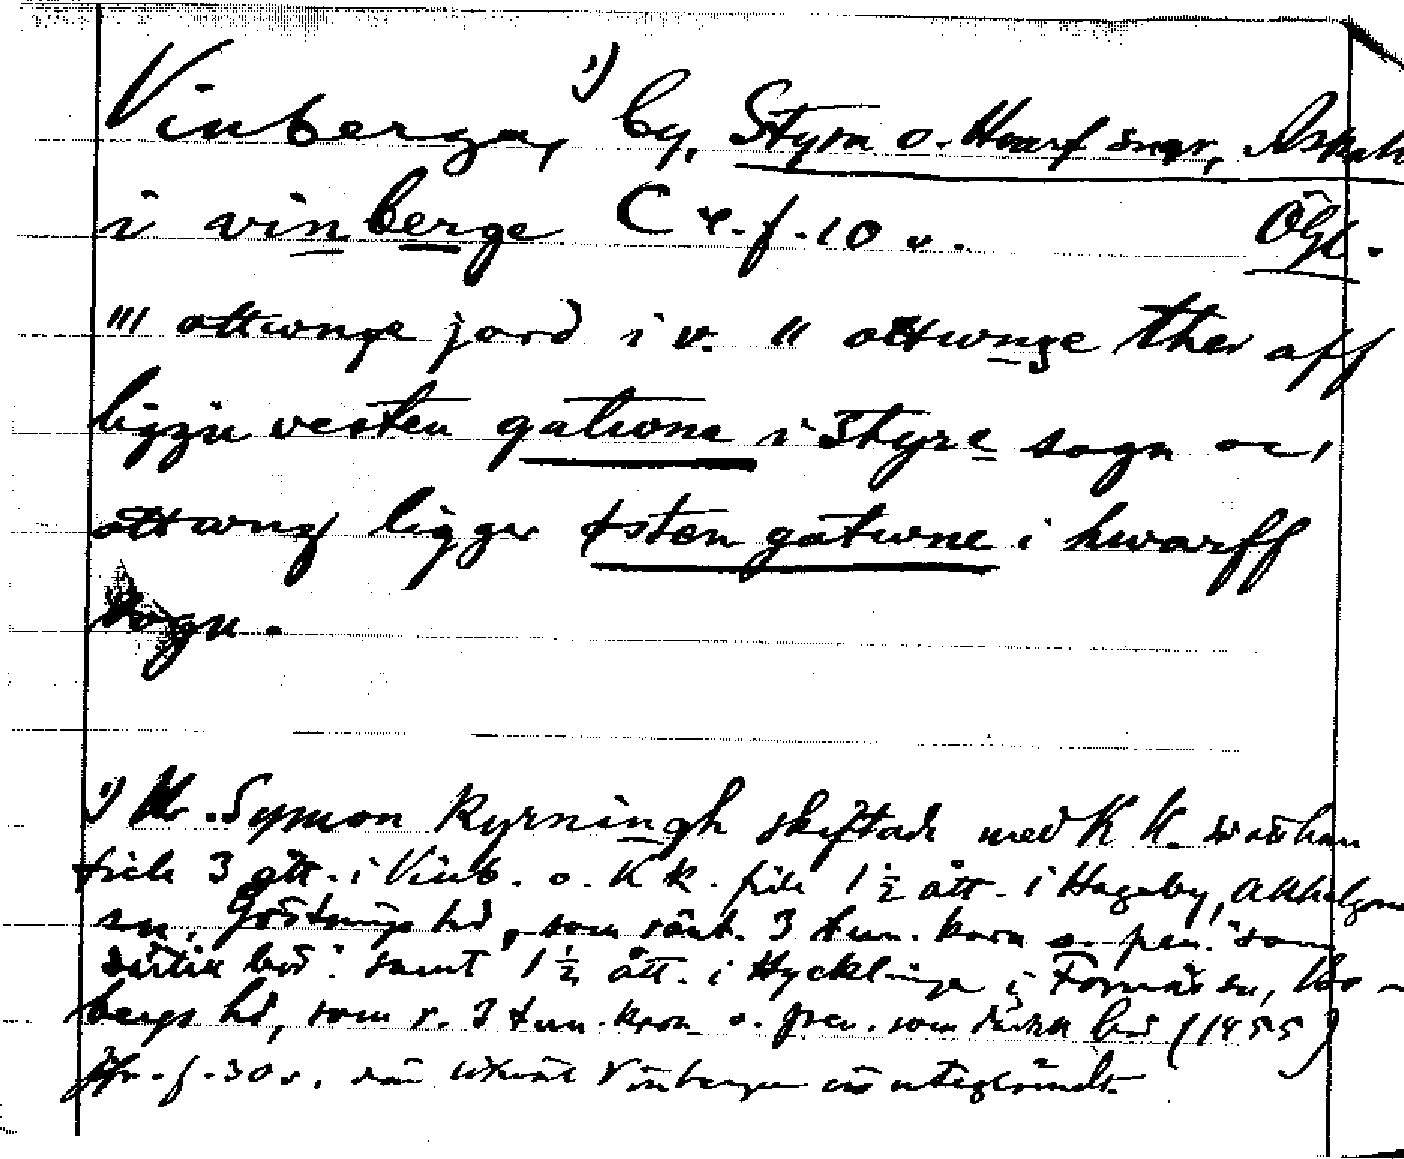 Vinberga, ¹⁾ by, Styra o. Hvarf snar, Askah
i vinberge C 4. f. 10 v. Ögl.
''' ottunge jord i v. '' ottunge ther aff
liggia vesten gatwna i styre sogn oc,
ottung ligger østen gatwne i hwarff
sogn.
¹⁾ Hr. Symon Kyrningh skiftade med K K. så att han
fick 3 ått. i Vinb. o. K K. fick 1 ½ ått. i Hageby, Allhelgona
sn, Göstrings hd, som ränt. 3 tun. korn o. pen. "som
bör". samt 1 ½ ått. i Hycklinge i Fornås sn, Bo-
bergs hd, som r. 3 tun. korn o. pen. som bör (1455)
Jfr. f. 30 v. Vinberga